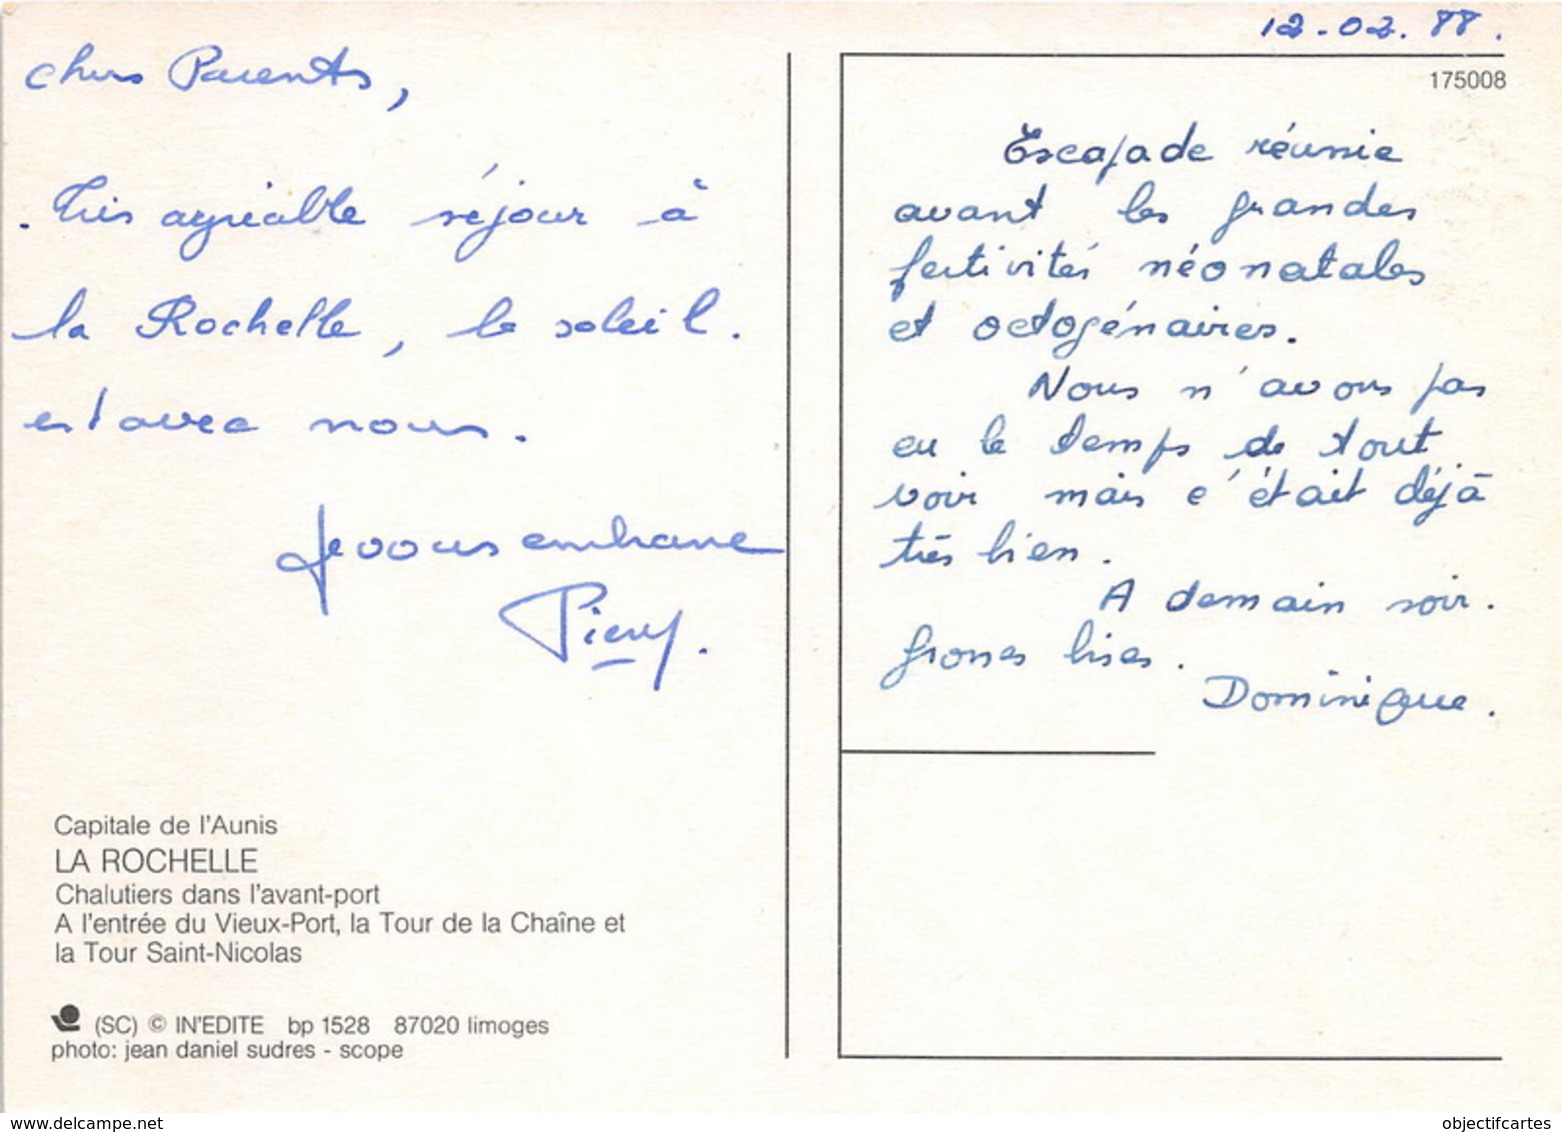 12.02.88.
175008
chers Parents,
. Très agréable séjour à
la Rochelle, le soleil.
est avec nous.
Je vous embrasse
Escapade réunie
avant les grandes
festivités néonatales
et octogénaires.
Nous n'avons pas
eu le temps de tout
voir mais c'était déjà
très bien.
A demain soir.
grosses bises.
Dominique.
Capitale de l'Aunis
LA ROCHELLE
Chalutiers dans l'avant-port
A l'entrée du Vieux-Port, la Tour de la Chaîne et
la Tour Saint-Nicolas
(SC) © IN'EDITE bp 1528 87020 limoges
photo: jean daniel sudres - scope
objectifcartes